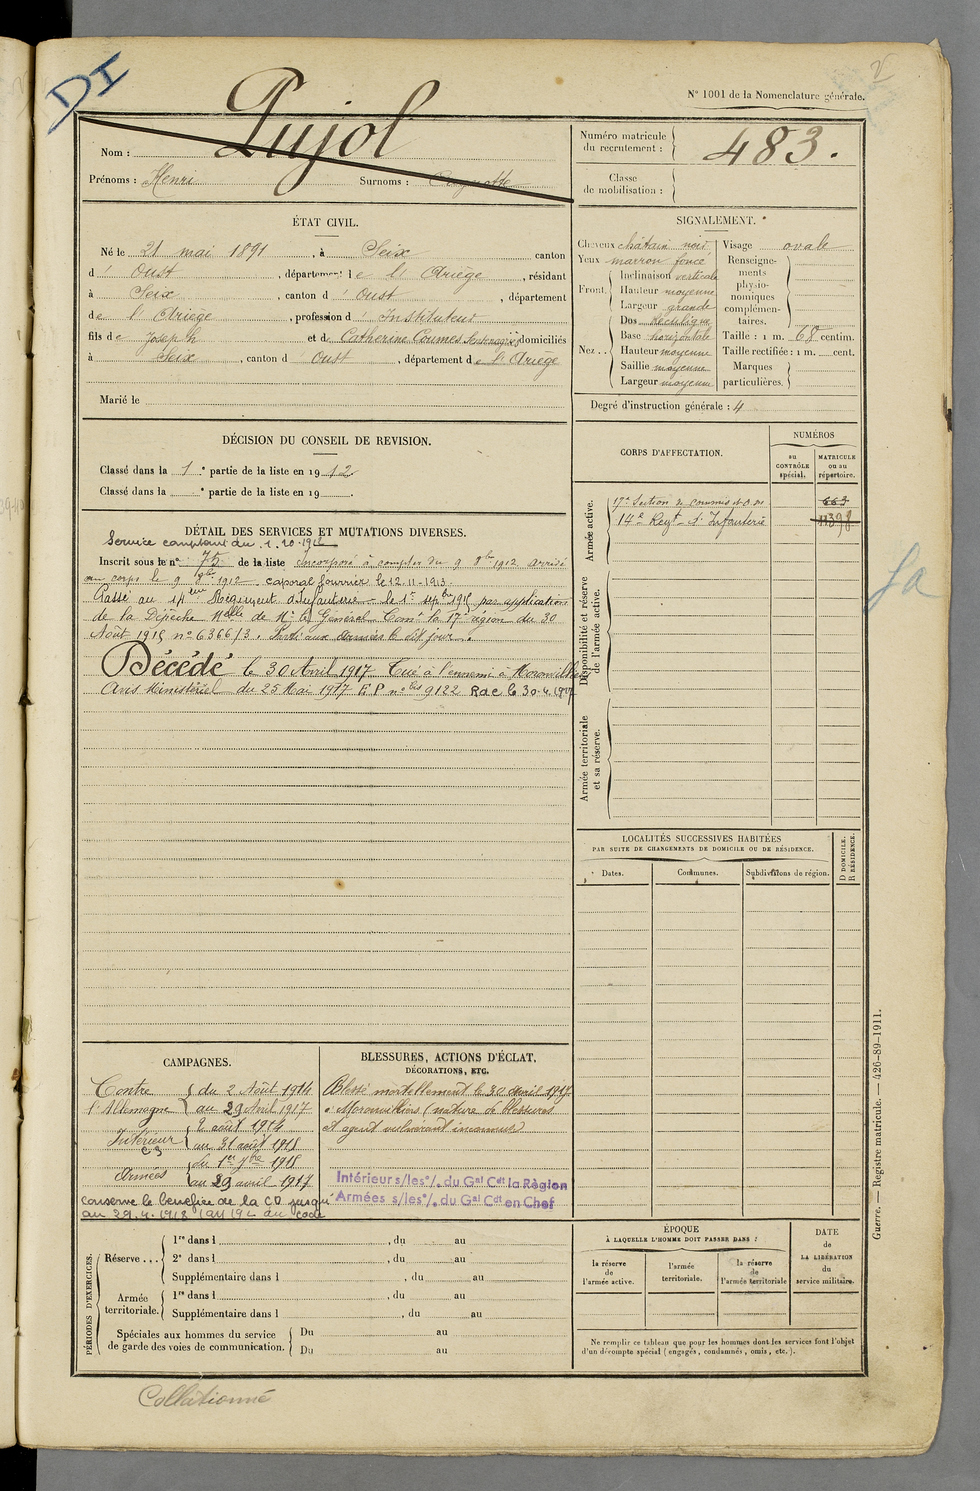 DI
N° 1001 de la Nomenclature générale.
Nom : Pujol
Prénoms : Henri Surnoms :
Numéro matricule du recrutement : 483.
Classe de mobilisation :
ÉTAT CIVIL.
Né le 21 mai 1891, à Seix canton
d' Oust, département de l'Ariège, résidant
à Seix, canton d' Oust, département
de l'Ariège, profession d' Instituteur
fils de Joseph et de Catherine Coumes domiciliés
à Seix, canton d' Oust, département de l'Ariège
Marié le
SIGNALEMENT.
Cheveux châtain noir
Yeux marron foncé
Front. Inclinaison verticale
Hauteur moyenne
Largeur grande
Nez.. Dos rectiligne
Base horizontale
Hauteur moyenne
Saillie moyenne
Largeur moyenne
Visage ovale
Renseignements physionomiques complémentaires.
Taille : 1 m. 68 centim.
Taille rectifiée : 1 m. cent.
Marques particulières.
Degré d'instruction générale : 4
DÉCISION DU CONSEIL DE REVISION.
Classé dans la 1e partie de la liste en 1912
Classé dans la e partie de la liste en 19 .
CORPS D'AFFECTATION.
NUMÉROS
au CONTRÔLE spécial.
MATRICULE ou au répertoire.
Armée active.
17e Section de commis et O. 663
14e Regt d'Infanterie 11398
Disponibilité et réserve de l'armée active.
Armée territoriale et sa réserve.
DÉTAIL DES SERVICES ET MUTATIONS DIVERSES.
Service comptant du 1.10.1912
Inscrit sous le n° 75 de la liste Incorporé à compter du 9 8bre 1912 arrivé
au corps le 9 8bre 1912. caporal fourrier le 12-11-1913.
Passé au 14eme Régiment d'Infanterie le 1er septbre 1915 par application
de la Dépêche Melle de Mr le Général Com. la 17e région du 30
Août 1915 n° 6366/3. Parti aux armées le dit jour.
Décédé le 30 Avril 1917 Tué à l'ennemi à Moronvilliers
Avis Ministériel du 25 Mai 1917 E.P n° bis 9122 Rac le 30.4.1917
LOCALITÉS SUCCESSIVES HABITÉES
PAR SUITE DE CHANGEMENTS DE DOMICILE OU DE RÉSIDENCE.
Dates. Communes. Subdivisions de région. D DOMICILE. R RÉSIDENCE.
CAMPAGNES.
Contre l'Allemagne du 2 Août 1914
au 29 Avril 1917
Intérieur CS 2 août 1914
au 31 août 1915
Armées du 1er 7bre 1915
au 29 avril 1917
conserve le bénéfice de la CD jusqu'
au 29.4.1918 au code
BLESSURES, ACTIONS D'ÉCLAT,
DÉCORATIONS, ETC.
Blessé mortellement le 30 Avril 1917
à Moronvilliers (nature de blessures
et agent vulnérant inconnus)
Intérieur s/les o/. du Gal Cdt la Région
Armées s/les o/. du Gal Cdt en Chef
PÉRIODES D'EXERCICES.
Réserve... 1re dans l , du au
2e dans l , du au
Supplémentaire dans l , du au
Armée territoriale. 1re dans l , du au
Supplémentaire dans l , du au
Spéciales aux hommes du service de garde des voies de communication. Du au
Du au
ÉPOQUE
À LAQUELLE L'HOMME DOIT PASSER DANS :
la réserve de l'armée active.
l'armée territoriale.
la réserve de l'armée territoriale
DATE de LA LIBÉRATION du service militaire.
Ne remplir ce tableau que pour les hommes dont les services font l'objet
d'un décompte spécial (engagés, condamnés, omis, etc.).
Guerre. — Registre matricule. — 426-89-1911.
Collationné